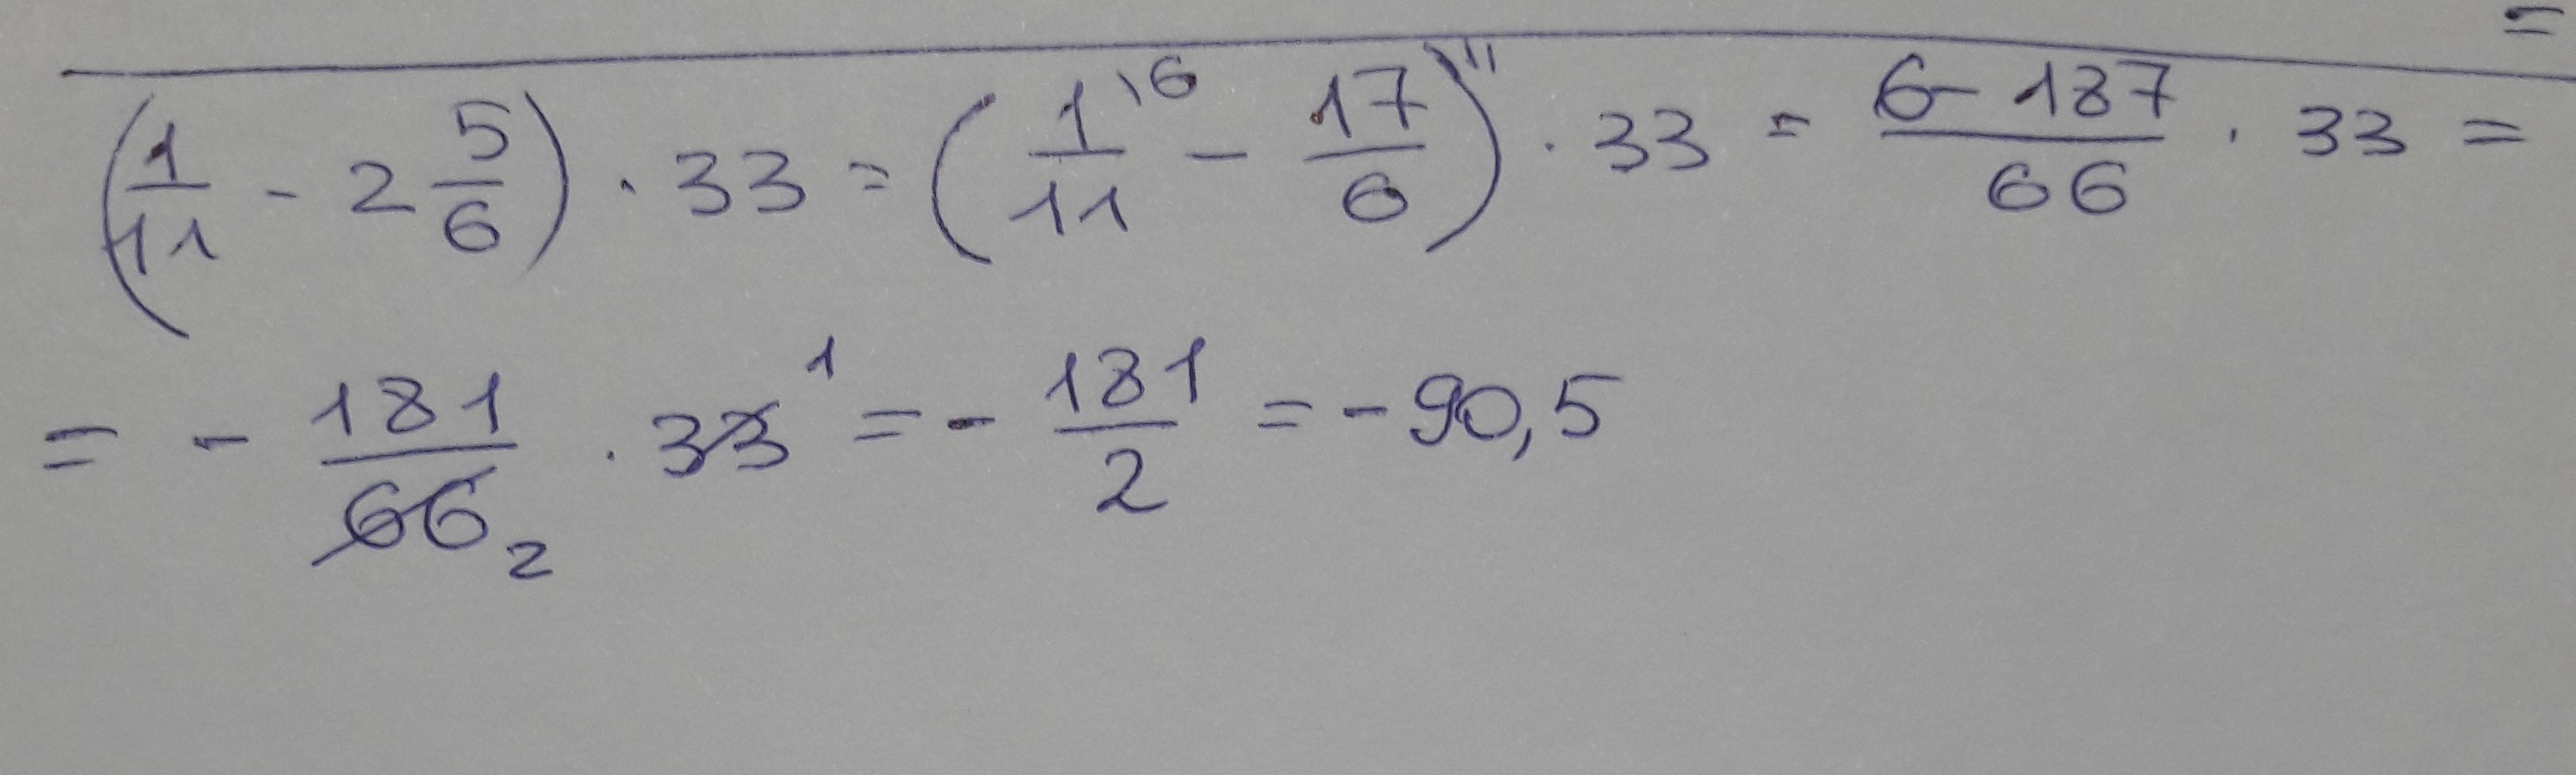 =
(1/11 - 2 5/6) · 33 = (1/11 \6 - 17/6 \11) · 33 = (6 - 187)/66 · 33 =
= - 181/66 2 · 33 1 = - 181/2 = -90,5